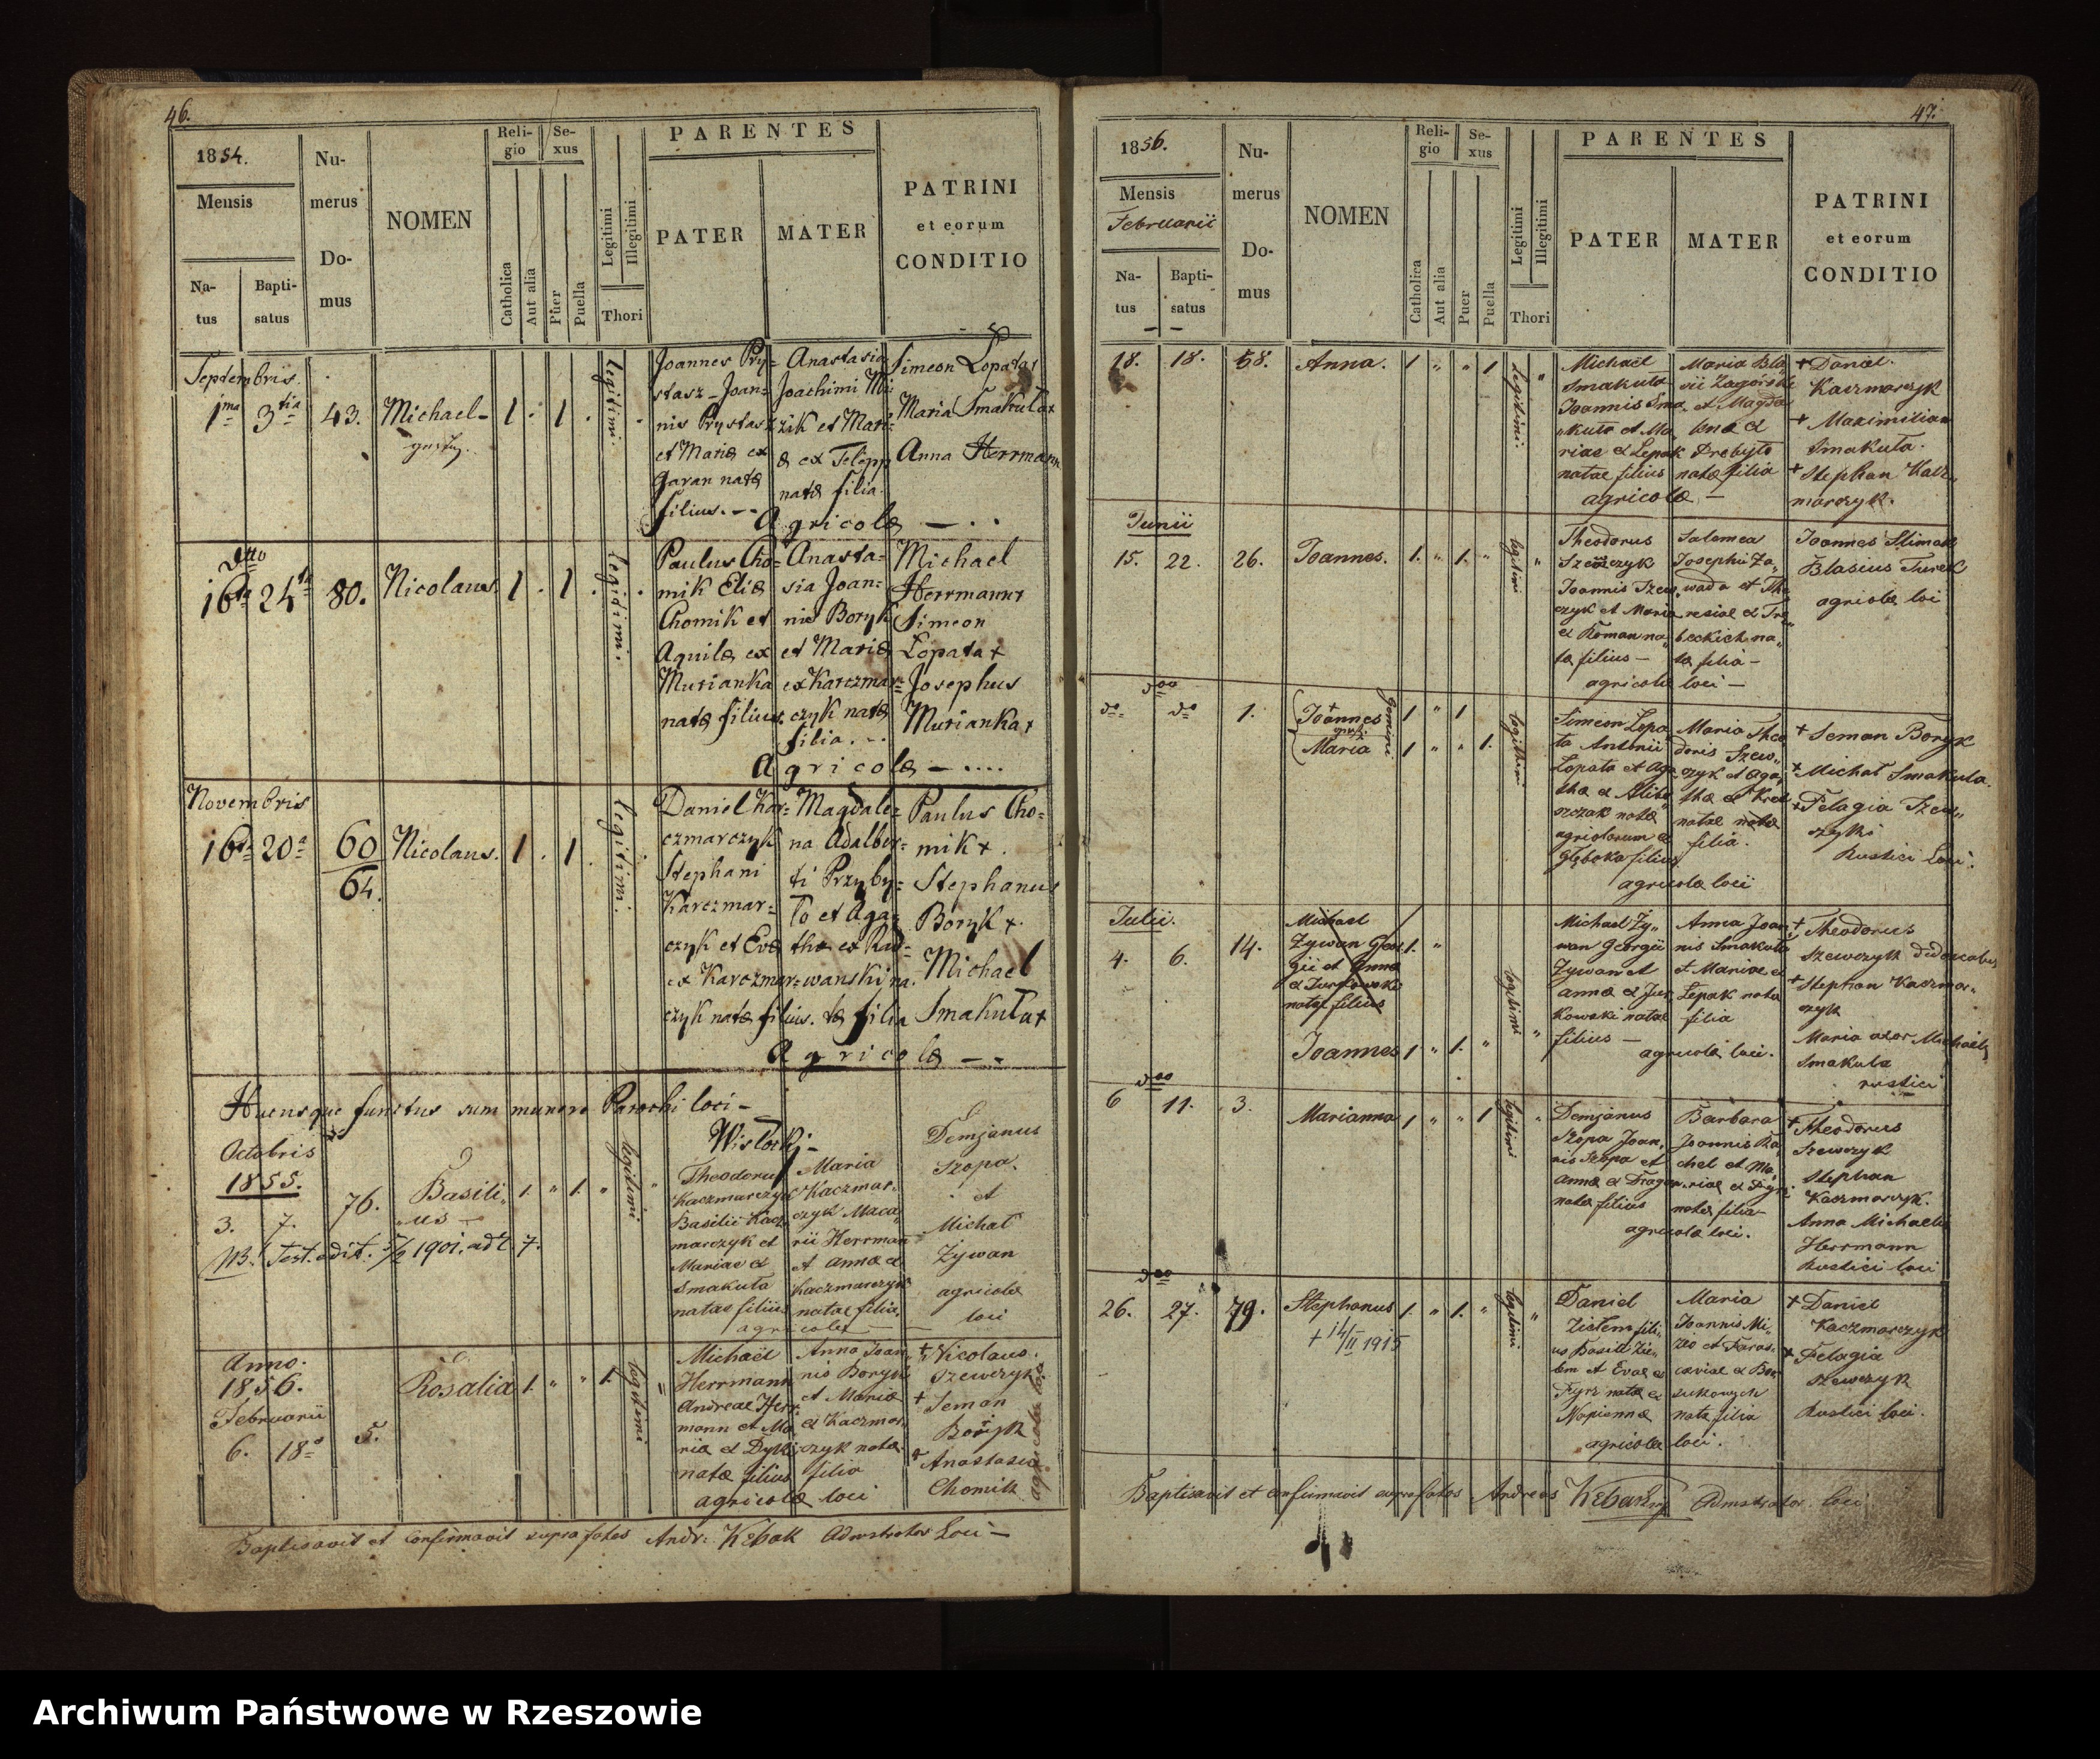 46.
1854.
Mensis
Na-
tus
Bapti-
satus
Nu-
merus
Do-
mus
NOMEN
Reli-
gio
Se-
xus
Catholica
Aut alia
Puer
Puella
Legitimi
Illegitimi
Thori
PARENTES
PATER
MATER
PATRINI
et eorum
CONDITIO
Septembris.
1ma 3tia 43. Michael 1 . 1 . legitimi.
Joannes Pry=
stasz Joan=
nis Prystasz
et Mariæ ex
Garan natæ
filius.
Anastasia
Joachimi
zik et Mari=
æ ex
natæ filia.
Simeon Łopata
Maria Smakuła
Anna Herrmann
Agricolæ
dtto
16ta 24ta 80. Nicolaus 1 . 1 . legitimi.
Paulus Cho=
mik Eliæ
Chomik et
Aquilæ ex
Murianka
natæ filius
Anasta=
sia Joan=
nis Boryk
et Mariæ
ex Karczmar=
czyk natæ
filia.
Michael
Herrmann
Simeon
Łopata +
Josephus
Murianka +
Agricolæ
Novembris
16ta 20a 60
64. Nicolaus. 1 . 1 . legitimi.
Daniel Kar=
czmarczyk
Stephani
Karczmar=
czyk et Evæ
ex Karczmar=
czyk natæ filius.
Magdale=
na Adalber=
ti Przyby=
ło et Aga=
thæ ex Rad=
wanski na=
tæ filia
Paulus Cho=
mik +.
Stephanus
Boryk +
Michael
Smakuła +
Agricolæ
Hucusque functus sum munere Parochi loci
Wisłocki
Octobris
1855.
3. 7. 76. Basili
us 1. " 1. " legitimi "
NB. Test. edit. 5/2 1901. ad L. 7.
Theodorus
Kaczmarczyk
Basilii Kacz
marczyk et
Mariae ex
Smakuła
natae filius
Maria
Kaczmar
czyk Maca
rii Herrman
et Annæ ex
Kaczmarczyk
natae filia.
agricolæ
Demjanus
Szopa.
et
Michał
Żywan
agricolæ
loci
Anno.
1856.
Februarii
6. 18a 5. Rosalia 1. " " 1. legitimi "
Michaël
Herrmann
Andreae Herr
mann et Ma
riæ ex
natæ filius
Anna Joan
nis Boryk
et Mariæ
ex Kaczmar
czyk natæ
filia
agricolæ loci
+ Nicolaus
Szewczyk
+ Seman
Boryk
+ Anastasia
Chomik
agricolæ loci
Baptisavit et confirmavit supra fates Andr: Kebak Admstrator Loci
47.
1856.
Mensis
Februarii
Na-
tus
Bapti-
satus
Nu-
merus
Do-
mus
NOMEN
Reli-
gio
Se-
xus
Catholica
Aut alia
Puer
Puella
Legitimi
Illegitimi
Thori
PARENTES
PATER
MATER
PATRINI
et eorum
CONDITIO
18. 18. 58. Anna. 1 " " 1 Legitimi. "
Michaël
Smakuła
Joannis Sma
kuła et Ma
riae ex Łepak
natae filius
Maria Bla
sii Zagórski
et Magda
lenæ ex
Prebyło
natæ filia
agricolæ
+ Daniel
Kaczmarczyk
+ Maximilian
Smakuła.
+ Stephan Kacz
marczyk.
Junii
15. 22. 26. Joannes. 1. " 1. " legitimi "
Theodorus
Szewczyk
Joannis Szew
czyk et Maria
ex Roman na
tæ filius
Salomea
Josephi Za
wada et The
resiae ex
na
tæ filia
agricolæ loci
Joannes Slimak
Blasius Turek
agricolæ loci
dtto
do do 1. Joannes 1 " 1
Maria 1 " " 1.
Gemini legitimi
Simeon Łopa
ta Antonii
Łopata et Aga
thæ ex
natæ
agricolarum ex
Głęboka filius
Maria Theo
doris Szew
czyk et Aga
thæ ex Kret
natae natæ
filia.
agricolæ locii
+ Seman Boryk
+ Michał Smakuła.
+ Pelagia Szew
czyk
Rustici Loci.
Julii.
4. 6. 14.
Michael
Zywan Geor
gii et Annæ
ex Jurkowski
natæ filius
1. "
Joannes 1 " 1. " legitimi "
Michael Zy
wan Georgii
Zywan et
Annæ ex Jur
kowski natae
filius
Anna Joan
nis Smakuła
et Mariae ex
Łepak natæ
filia
agricolæ loci.
+ Theodorus
Szewczyk
+ Stephan Kaczmar
czyk
Maria uxor Michaelis
Smakuła
rustici
dtto
6 11. 3. Marianna 1 " " 1 legitimi "
Demjanus
Szopa Joan
nis Szopa et
Annæ ex Dragan
natæ filius
Barbara
Joannis Ra
chel et Ma
riae ex
natæ filia
agricolæ loci.
+ Theodorus
Szewczyk
Stephan
Kaczmarczyk.
Anna Michaelis
Herrmann
Rustici loci
dtto
26. 27. 79. Stephanus 1. " 1. " legitimi "
+ 14/II 1915
Daniel
Zielem fili
us Basilii Zie
lem et Evae ex
Fyrz natæ ex
Napienna
Maria
Joannis Mi
zio et Paras
ceviae ex Bor
natæ filia
agricolæ loci.
+ Daniel
Kaczmarczyk
+ Pelagia
Szewczyk
Rustici loci.
Baptisavit et confirmavit supra fatos Andreas Kebak Admstrator loci
Archiwum Państwowe w Rzeszowie